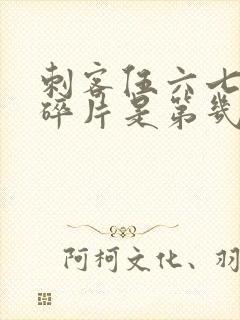 刺客伍六七
碎片是第幾
阿柯文化、羽